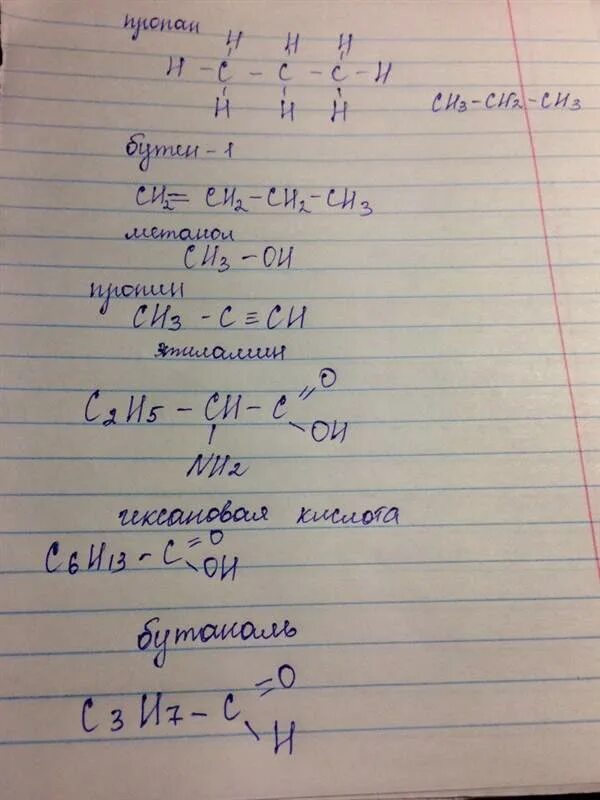 пропан
H H H
H - C - C - C - H
H H H
CH3-CH2-CH3
бутен-1
CH2= CH2-CH2-CH3
метанол
CH3 - OH
пропин
CH3 - C ≡ CH
этиламин
C2H5 - CH - C =O
- OH
NH2
гексановая кислота
C6H13 - C =O
- OH
бутаналь
C3H7 - C =O
- H